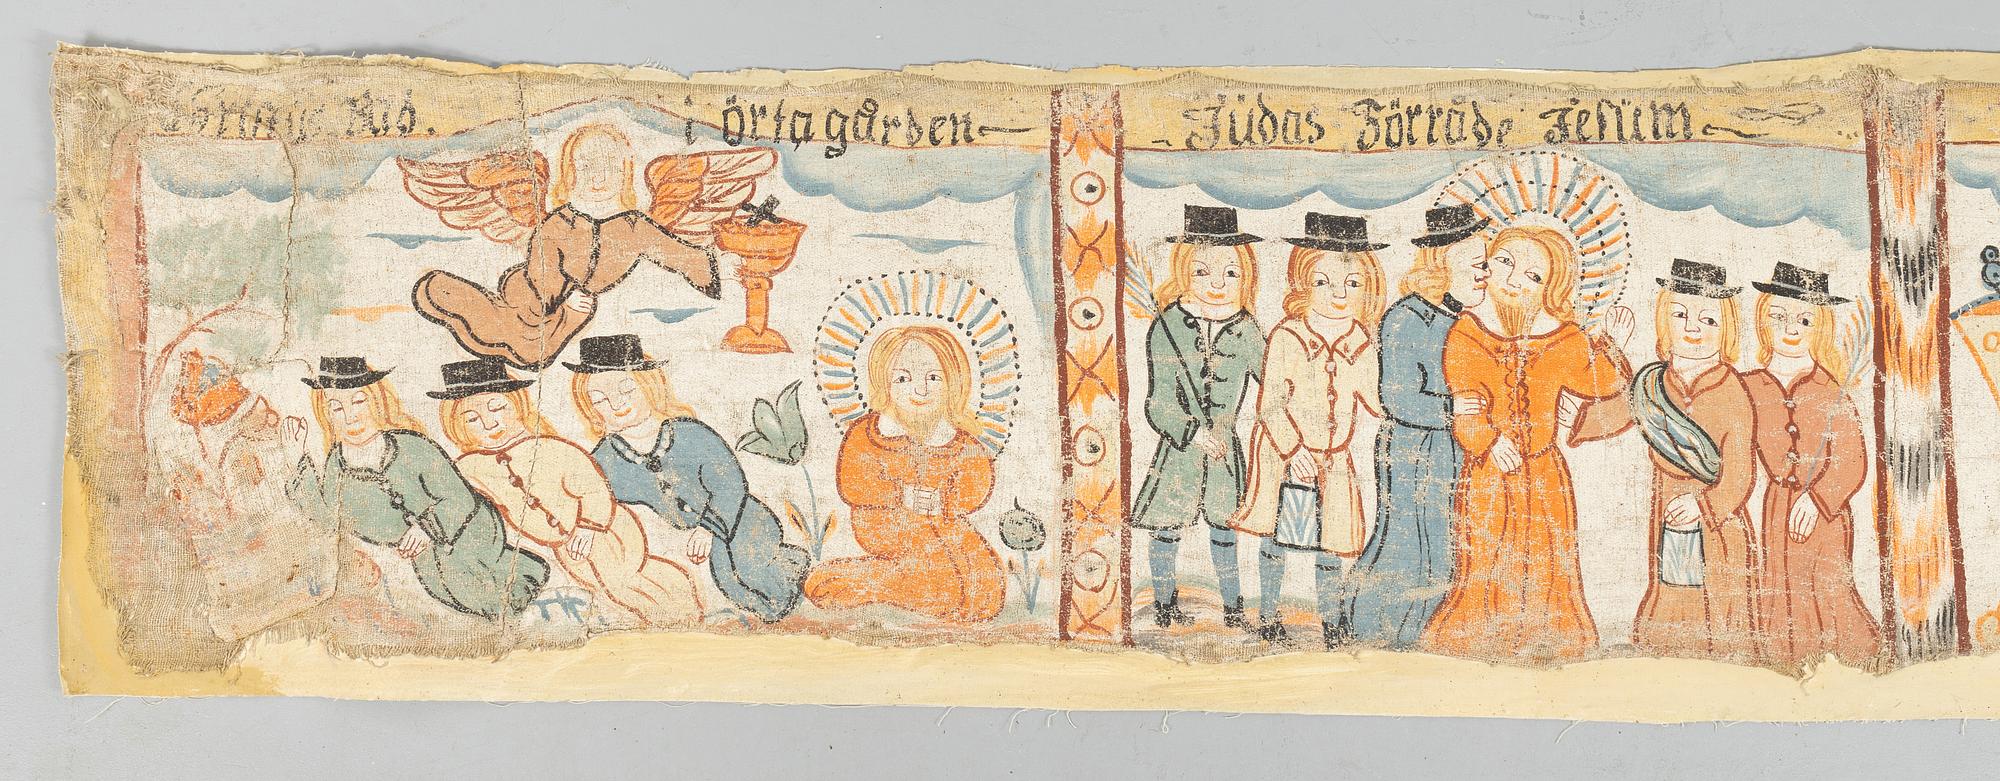 i örtagården
Jüdas Förråde Jesüm